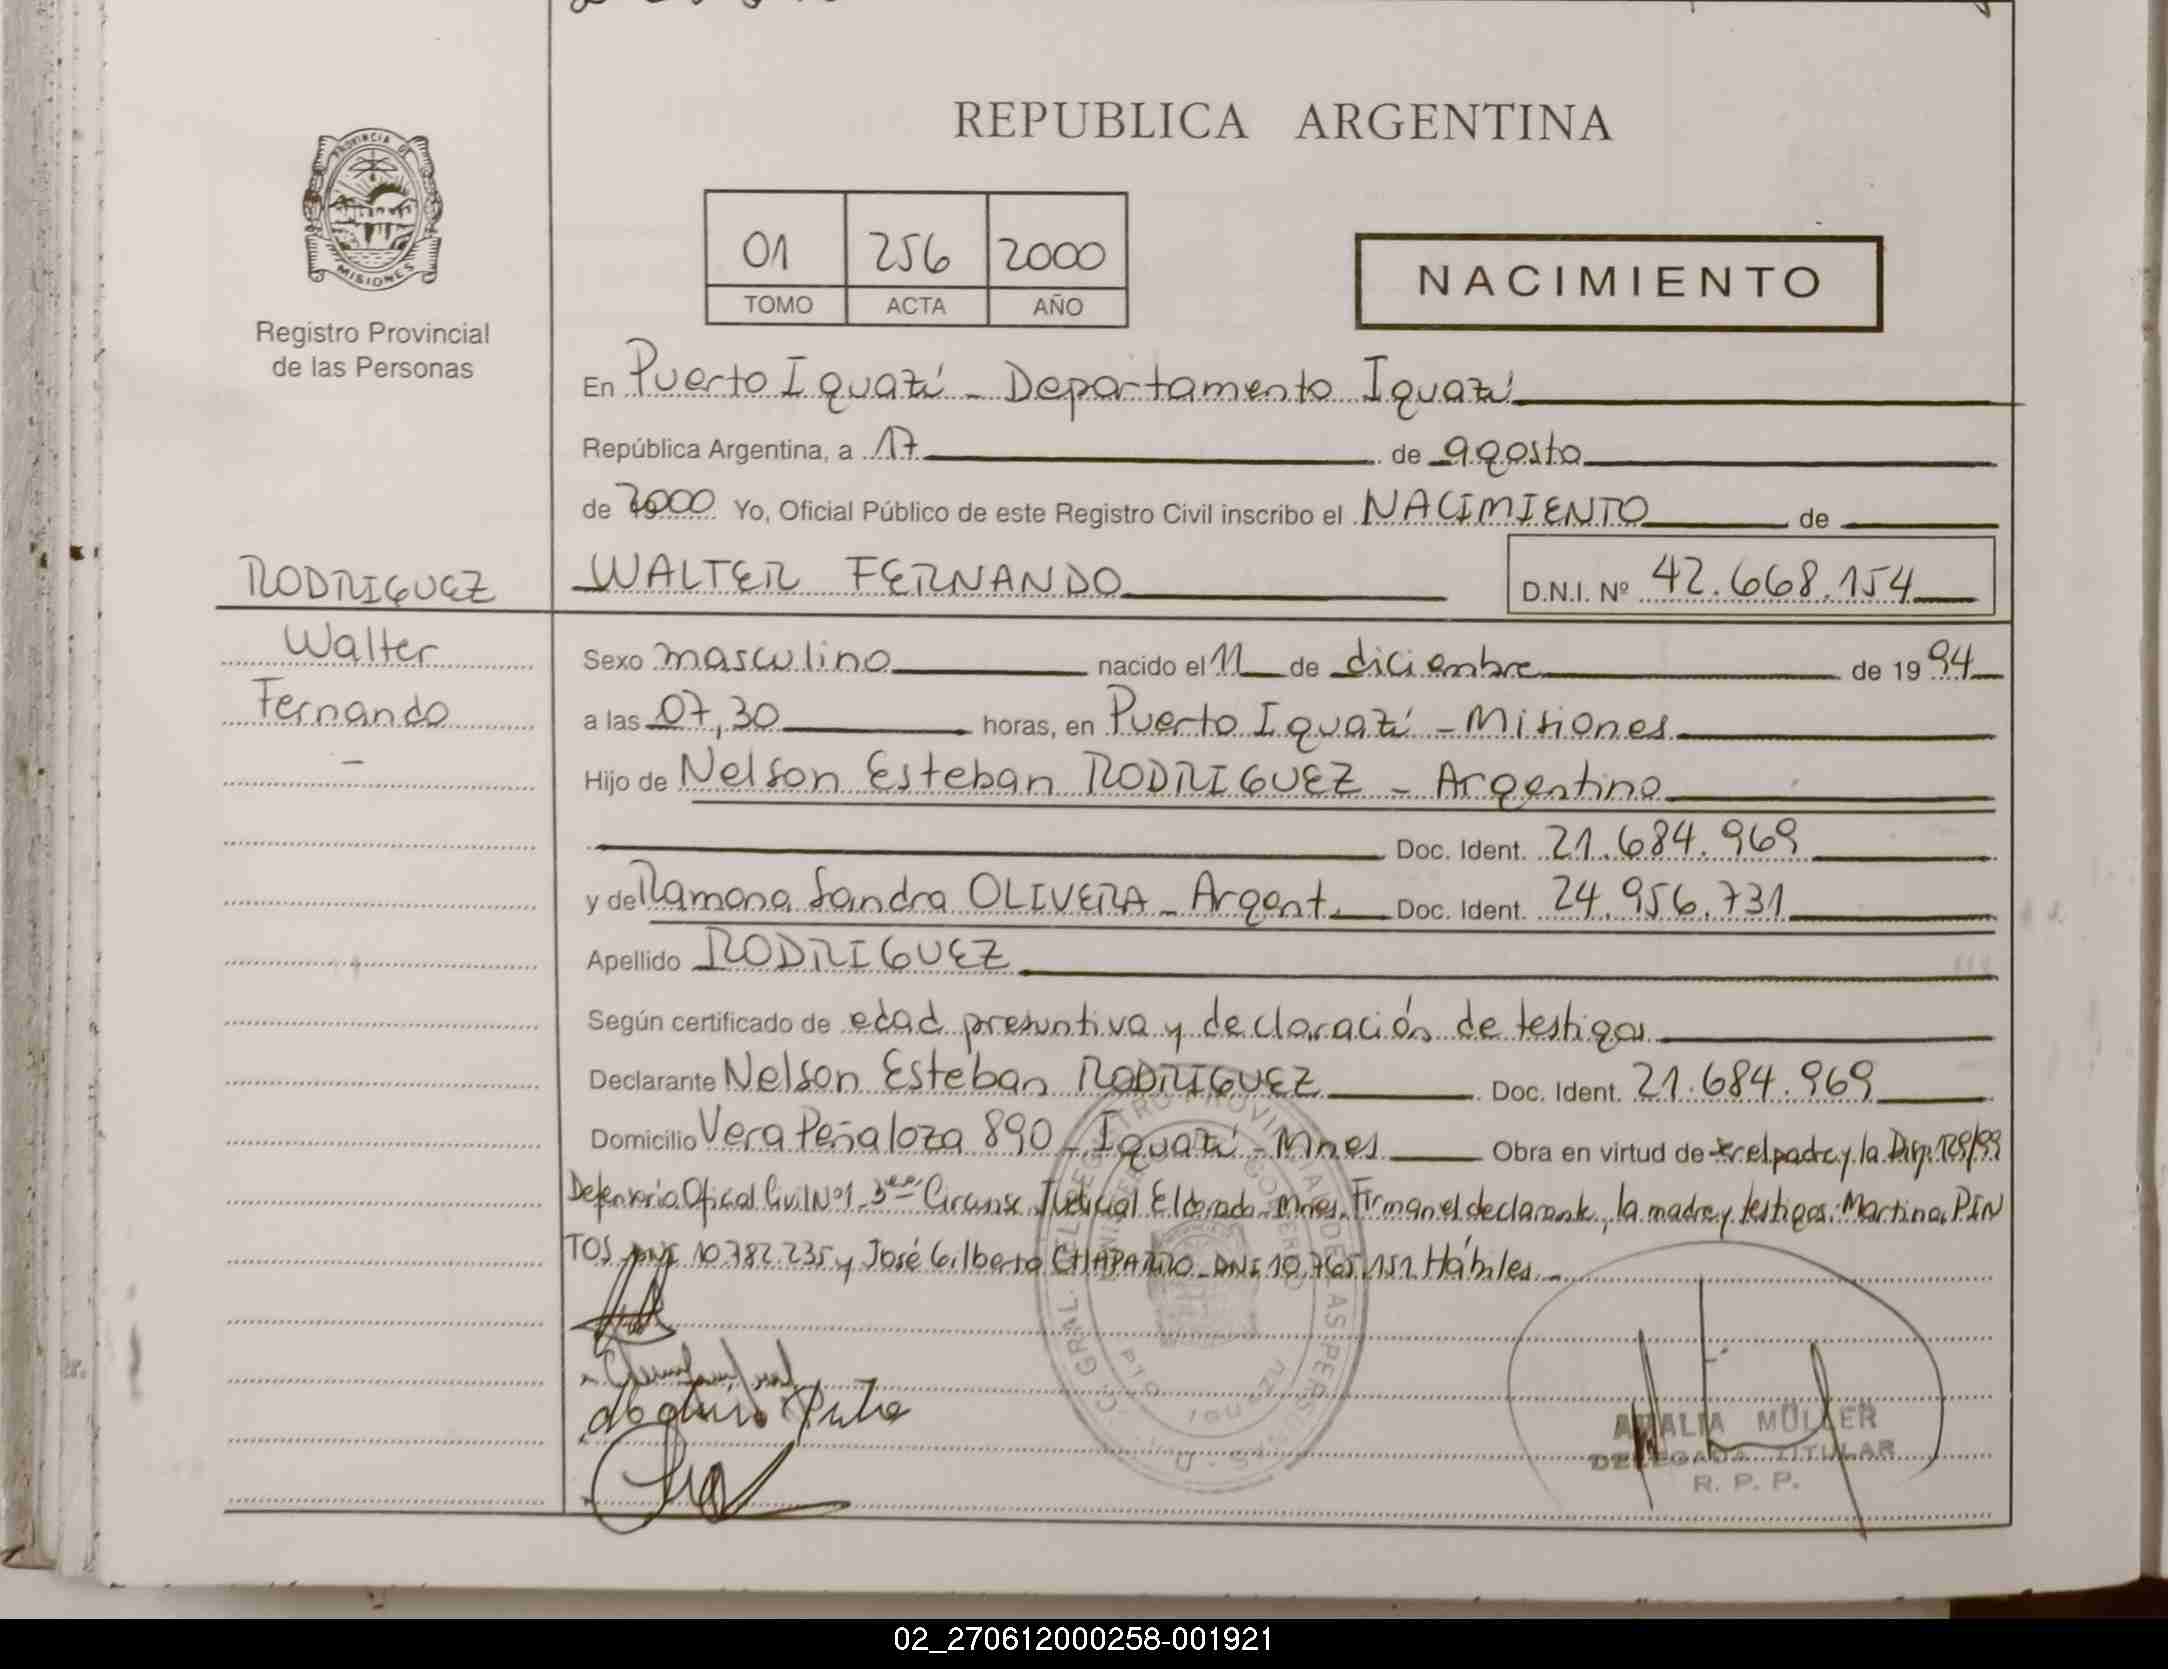 REPUBLICA ARGENTINA
PROVINCIA DE
MISIONES
Registro Provincial
de las Personas
01 256 2000
TOMO ACTA AÑO
NACIMIENTO
En Puerto Iguazú - Departamento Iguazú
República Argentina, a 17 de agosto
de 2000 Yo, Oficial Público de este Registro Civil inscribo el NACIMIENTO de
RODRIGUEZ
WALTER FERNANDO D.N.I. Nº 42.668.154
Walter
Fernando
-
Sexo masculino nacido el 11 de diciembre de 1994
a las 07,30 horas, en Puerto Iguazú - Misiones
Hijo de Nelson Esteban RODRIGUEZ - Argentino
Doc. Ident. 21.684.969
y de Ramona Sandra OLIVERA - Argent. Doc. Ident. 24.956.731
Apellido RODRIGUEZ
Según certificado de edad presuntiva y declaración de testigos
Declarante Nelson Esteban RODRIGUEZ Doc. Ident. 21.684.969
Domicilio Vera Peñaloza 890 - Iguazú - Mnes Obra en virtud de ser el padre y la Disp. 129/99
Defensoría Oficial Civil Nº1 - 3era Circunsc Judicial Eldorado - Mnes. Firman el declarante, la madre y testigos: Martina PIN
TOS DNI 10.782.235 y José Gilberto CHAPARRO - DNI 10.765.151 Hábiles -
AMALIA MÜLLER
DELEGADA TITULAR
R. P. P.
02_270612000258-001921